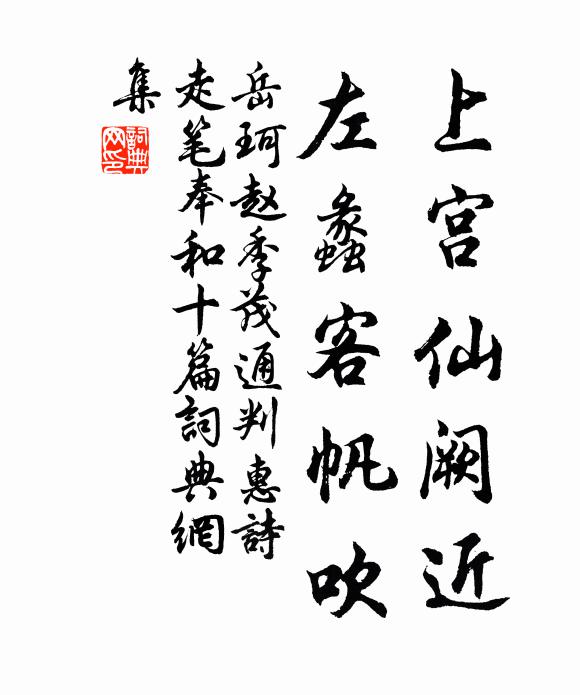 上宫仙阙近
左蠡客帆吹
岳珂赵季茂通判惠詩
走笔奉和十篇詞典網
集
詞典网印